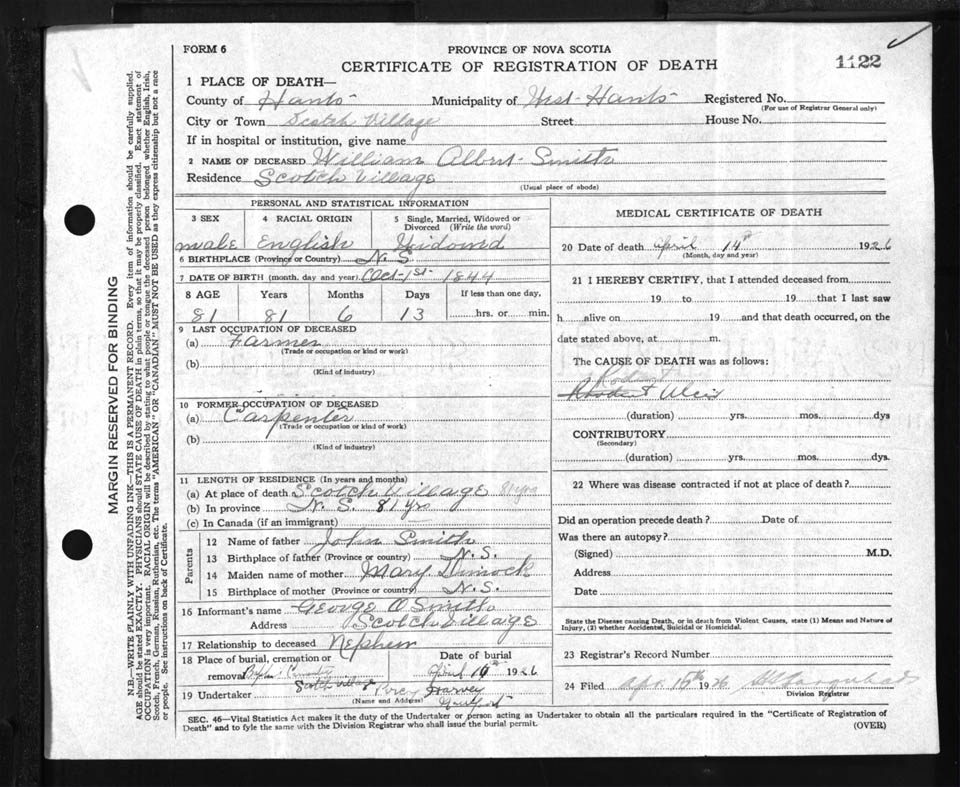 FORM 6
PROVINCE OF NOVA SCOTIA
CERTIFICATE OF REGISTRATION OF DEATH
1122
1 PLACE OF DEATH—
County of Hants Municipality of West-Hants Registered No.
(For use of Registrar General only)
City or Town Scotch Village Street House No.
If in hospital or institution, give name
2 NAME OF DECEASED William Albert Smith
Residence Scotch Village
(Usual place of abode)
PERSONAL AND STATISTICAL INFORMATION
3 SEX 4 RACIAL ORIGIN 5 Single, Married, Widowed or Divorced (Write the word)
male English Widowed
6 BIRTHPLACE (Province or Country) N.S.
7 DATE OF BIRTH (month, day and year) Oct-1st- 1844
8 AGE Years Months Days If less than one day,
81 81 6 13 hrs. or min.
9 LAST OCCUPATION OF DECEASED
(a) Farmer
(Trade or occupation or kind of work)
(b)
(Kind of industry)
10 FORMER OCCUPATION OF DECEASED
(a) Carpenter
(Trade or occupation or kind of work)
(b)
(Kind of industry)
11 LENGTH OF RESIDENCE (In years and months)
(a) At place of death Scotch Village 81 yrs
(b) In province N.S. 81 yrs
(c) In Canada (if an immigrant)
Parents
12 Name of father John Smith
13 Birthplace of father (Province or country) N.S.
14 Maiden name of mother Mary Dimock
15 Birthplace of mother (Province or country) N.S.
16 Informant's name George A Smith
Address Scotch Village
17 Relationship to deceased Nephew
18 Place of burial, cremation or removal Date of burial
Scotch Village April 16th 1926
19 Undertaker Percy Harvey
(Name and Address)
MEDICAL CERTIFICATE OF DEATH
20 Date of death April 14th 1926
(Month, day and year)
21 I HEREBY CERTIFY, that I attended deceased from
19 to 19 that I last saw
h alive on 19 and that death occurred, on the
date stated above, at m.
The CAUSE OF DEATH was as follows:
Rodent
Rhodent Ulcer
(duration) yrs. mos. dys
CONTRIBUTORY
(Secondary)
(duration) yrs. mos. dys.
22 Where was disease contracted if not at place of death?
Did an operation precede death? Date of
Was there an autopsy?
(Signed) M.D.
Address
Date
State the Disease causing Death, or in death from Violent Causes, state (1) Means and Nature of
Injury, (2) whether Accidental, Suicidal or Homicidal.
23 Registrar's Record Number
24 Filed Apr. 15th 1926
Division Registrar
SEC. 46—Vital Statistics Act makes it the duty of the Undertaker or person acting as Undertaker to obtain all the particulars required in the "Certificate of Registration of
Death" and to fyle the same with the Division Registrar who shall issue the burial permit. (OVER)
MARGIN RESERVED FOR BINDING
N.B.—WRITE PLAINLY WITH UNFADING INK—THIS IS A PERMANENT RECORD. Every item of information should be carefully supplied.
AGE should be stated EXACTLY. PHYSICIANS should STATE CAUSE OF DEATH in plain terms, so that it may be properly classified. Exact statement of
OCCUPATION is very important. RACIAL ORIGIN will be described by stating to what people or tongue the deceased person belonged whether English, Irish,
Scotch, French, German, Russian, Ruthenian, etc. The terms "AMERICAN" OR "CANADIAN" MUST NOT BE USED as they express citizenship but not a race
or people. See instructions on back of Certificate.